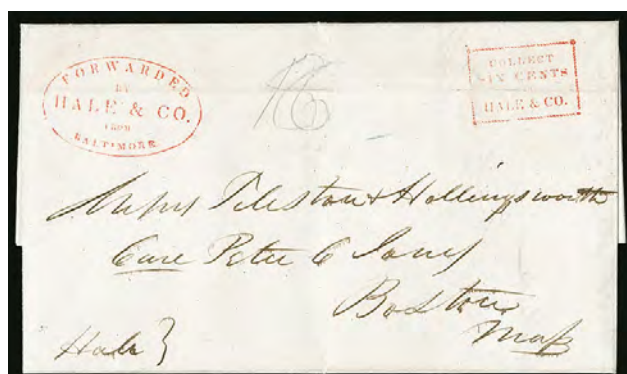 FORWARDED
BY
HALE & CO.
FROM
BALTIMORE
COLLECT
SIX CENTS
HALE & CO.
Messrs Tileston & Hollingsworth
Care Peter C Jones
Boston
Mass
Hale